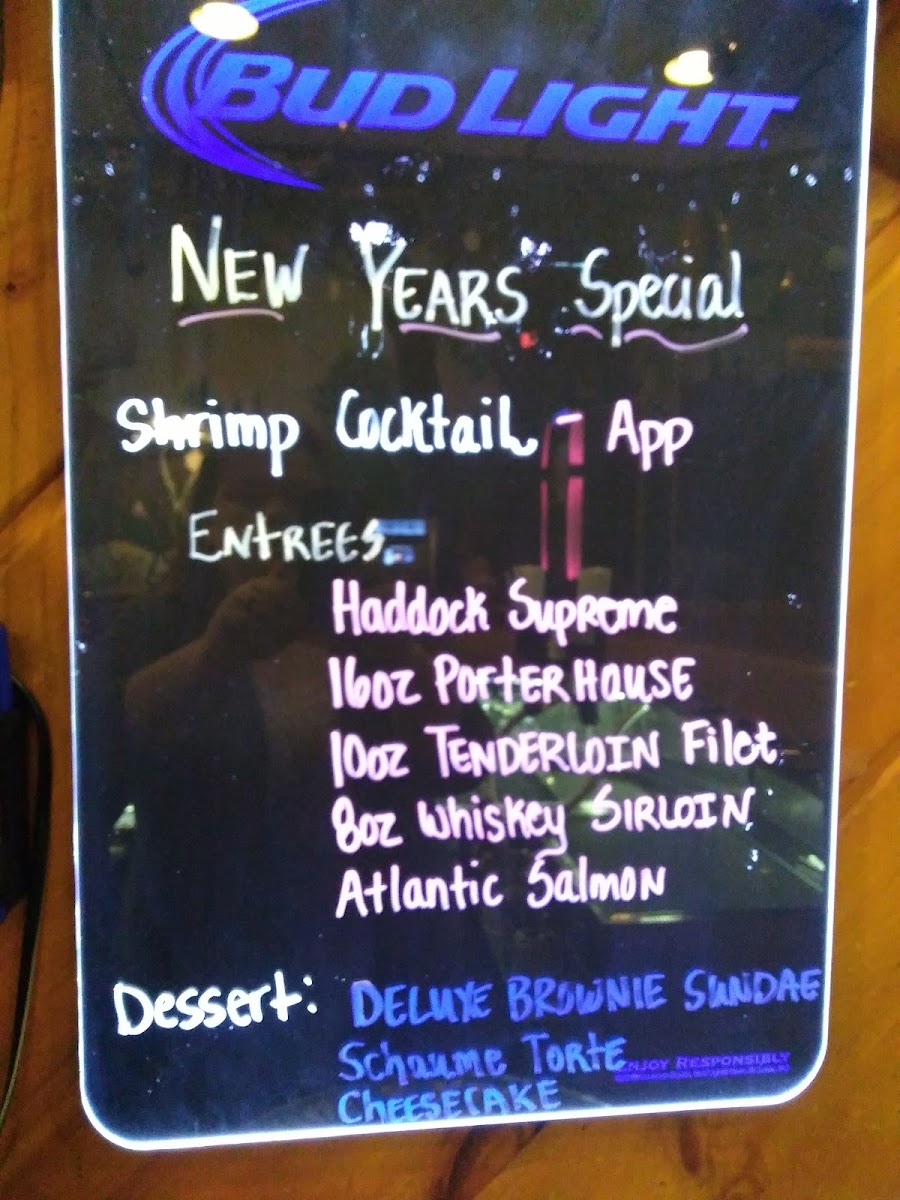 BUD LIGHT
NEW YEARS Special
Shrimp Cocktail - App
ENtREES
Haddock Supreme
16oz PorterHouse
10oz TENDERLOIN Filet
8oz Whiskey SIRLOIN
Atlantic Salmon
Dessert: DELUXE BROWNIE SUNDAE
Schaume Torte
ENJOY RESPONSIBLY
CHEESECAKE